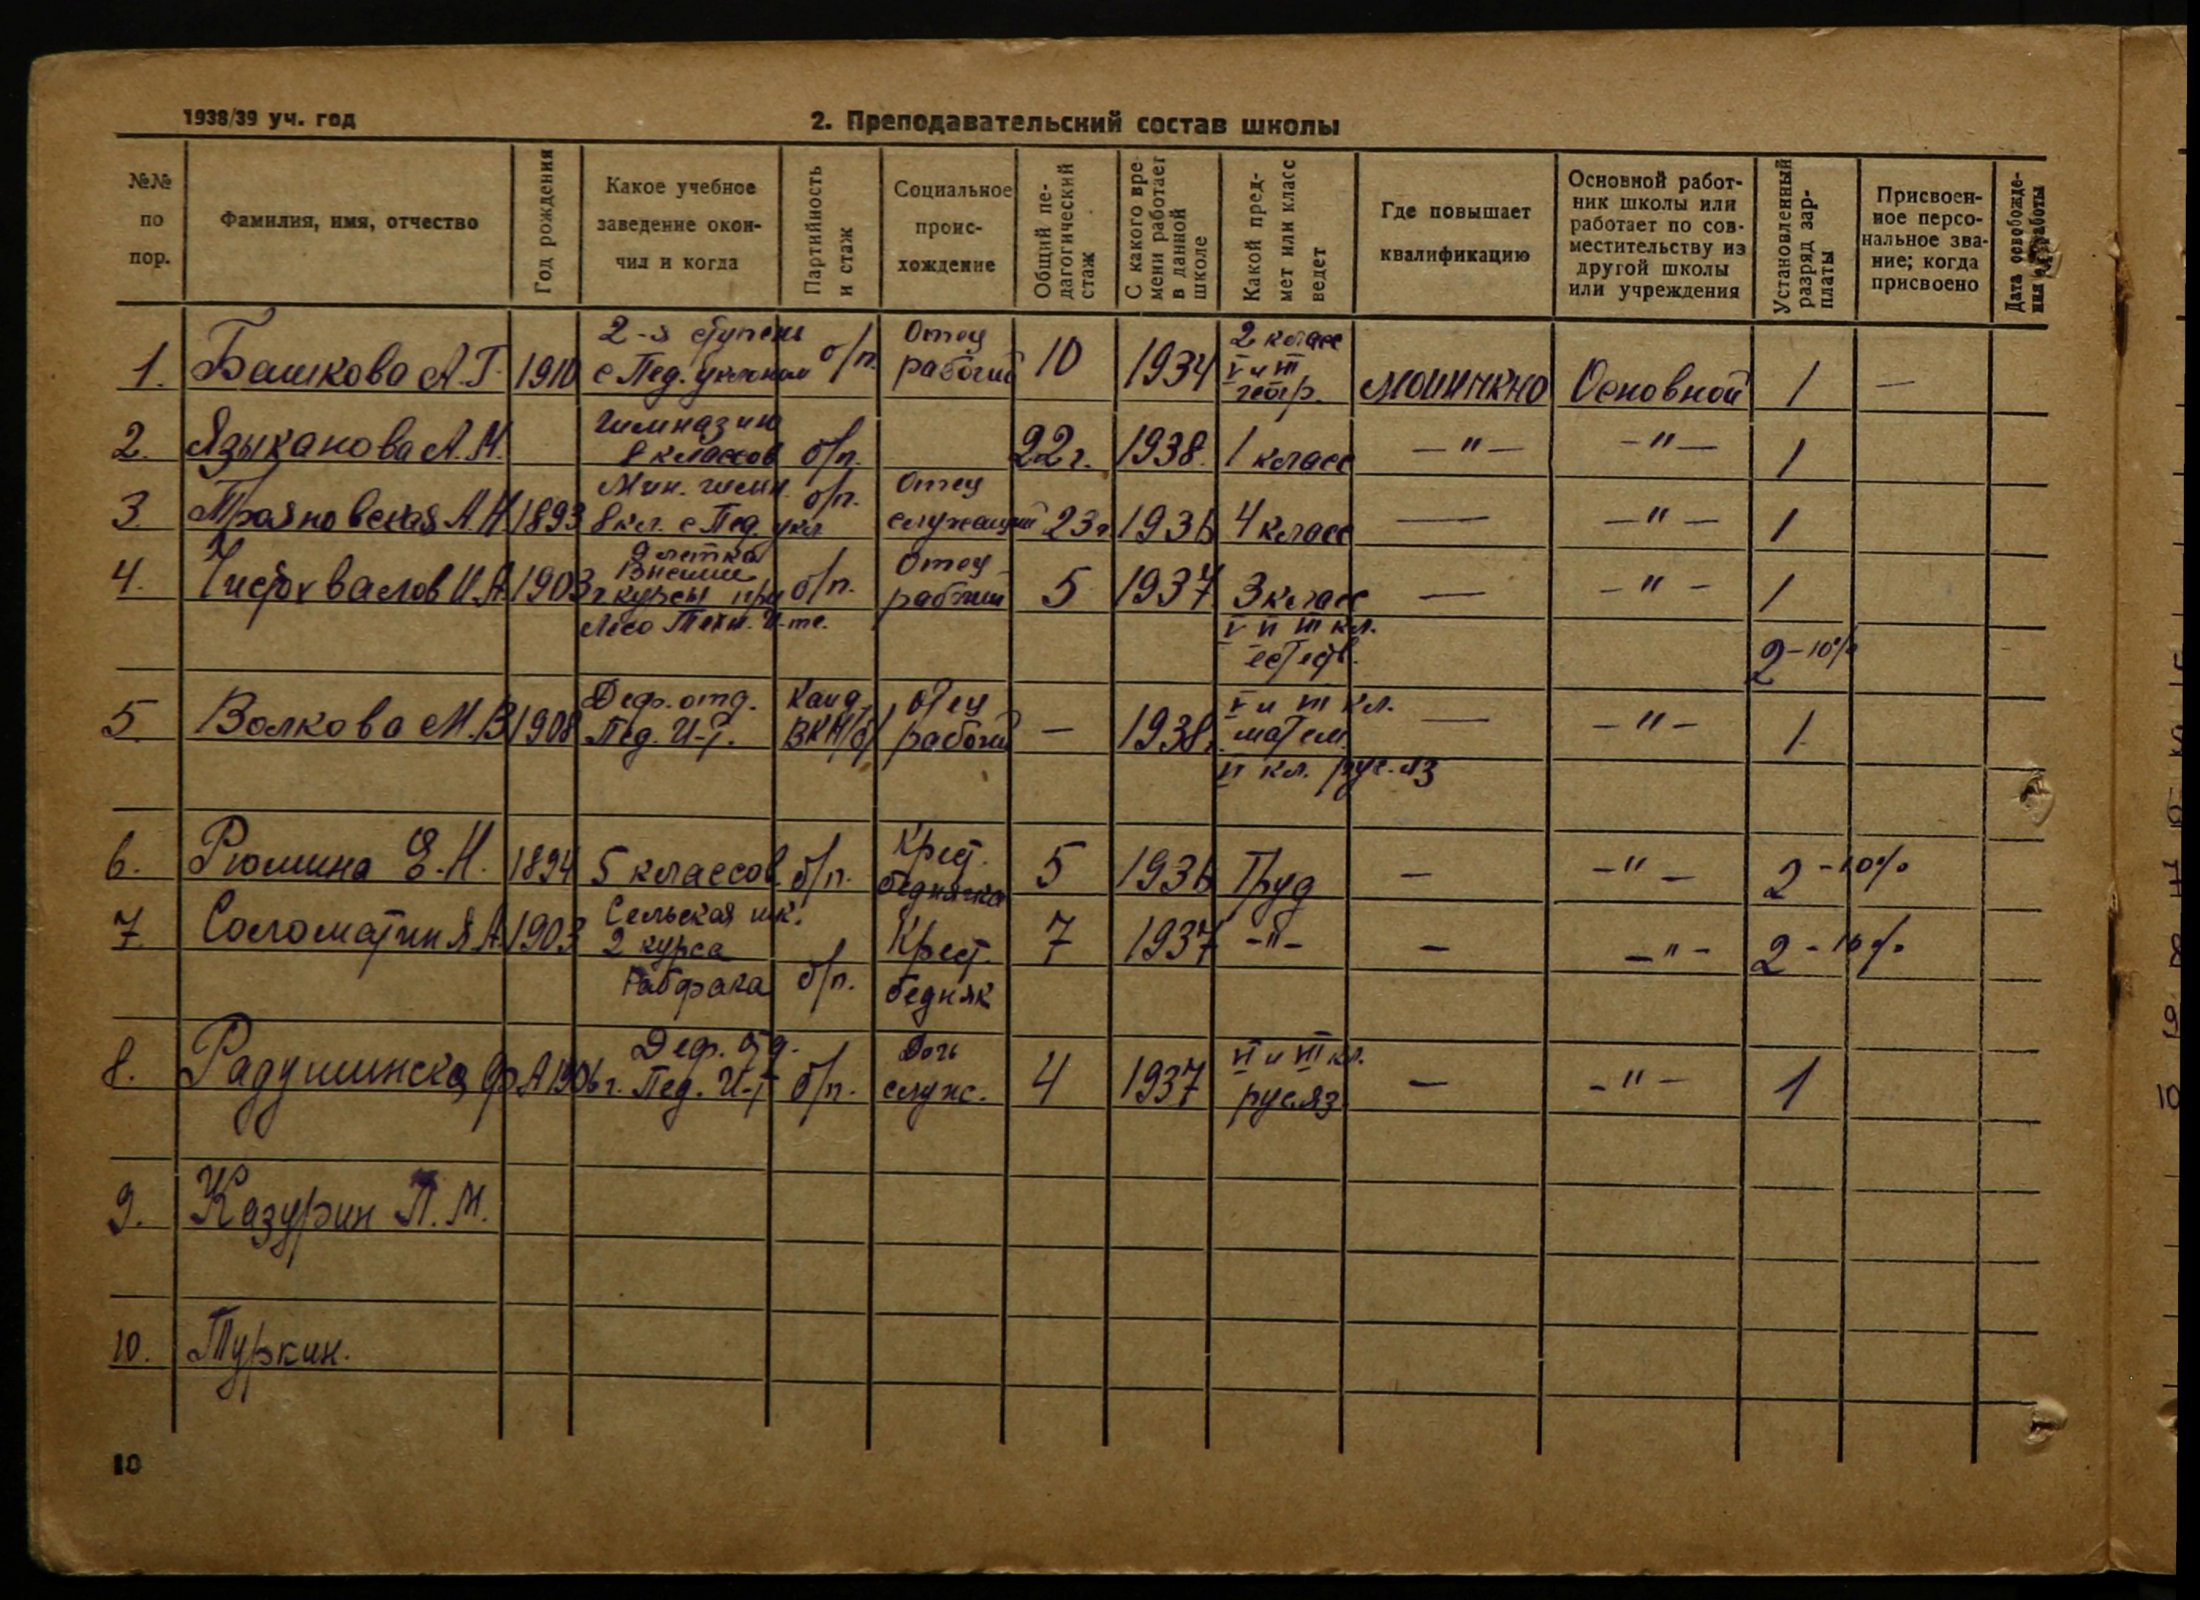 1938/39 уч. год
2. Преподавательский состав школы
№№ по пор.
Фамилия, имя, отчество
Год рождения
Какое учебное заведение окон-чил и когда
Партийность и стаж
Социальное проис-хождение
Общий пе-дагогический стаж
С какого вре-мени работает в данной школе
Какой пред-мет или класс ведет
Где повышает квалификацию
Основной работ-ник школы или работает по сов-местительству из другой школы или учреждения
Установленный разряд зар-платы
Присвоен-ное персо-нальное зва-ние; когда присвоено
Дата освобожде-ния работы
1. Башкова А.Г. 1910 2-я ступень с Пед. уклоном б/п. Отец рабочий 10 1934 2 класс V и III геогр. Основной 1 —
2. Языканова А.М. гимназию 8 классов б/п. 22 г. 1938. 1 класс —"— —"— 1
3 Трояновская А.Н 1893 Мин. гимн. 8 кл. с Пед. укл б/п. Отец служащий 23 г 1936 4 класс — —"— 1
4. Чистохвалов И.А 1903 9 летка курсы при Лесо Техн. И-те. б/п. Отец рабочий 5 1937 3 класс — —"— 1
V VI III кл. естеств. 2-10%
5. Волкова М.В 1908 Деф. отд. Пед. И-т. Канд. ВКП/б/ отец рабочий — 1938. V и III кл. матем. — —"— 1
VI кл. рус. яз
6. Рюмина Е.Н. 1894 5 классов б/п. Крест. беднячка 5 1936 Труд — —"— 2-10%
7 Соломатин Я А. 1903 Сельская шк. 2 курса Рабфака б/п. Крест. бедняк 7 1937 -"- — —"— 2-10%
8. Радушинска Ф А 1906 г. Деф. отд. Пед. И-т б/п. Дочь служ. 4 1937 VI и VII кл. рус.яз — —"— 1
9. Казурин П.М.
10. Туркин.
10